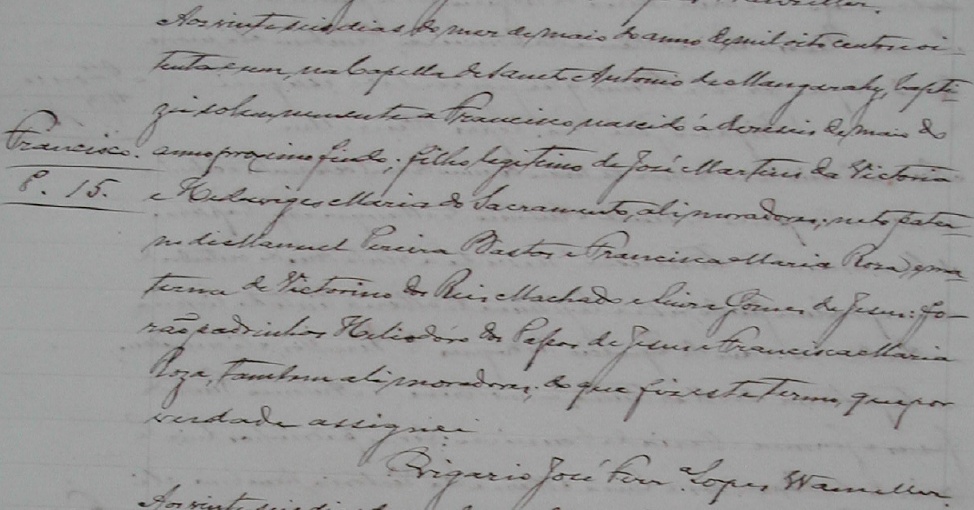 Aos vinte seis dias do mez de maio do anno de mil oito centos oi-
tenta e um, na Capella de Sancto Antonio de Mangarahy, bapti-
zei solemnemente a Francisco nascido á deseseis de maio do
Francisco. anno proximo findo; filho legitimo de José Martins da Victoria
P. 15. e Heduviges Maria do Sacramento, ali moradores; neto pater-
no de Manuel Pereira Bastos e Francisca Maria Roza, e ma-
terno de Victorino dos Reis Machado e Gomes de Jesus: fo-
rão padrinhos Heliodóro dos Passos de Jesus e Francisca Maria
Roza, tambem ali moradores; do que fiz este termo, que por
verdade assignei
O vigario José Ferr.ª Lopes
Aos vinte seis di